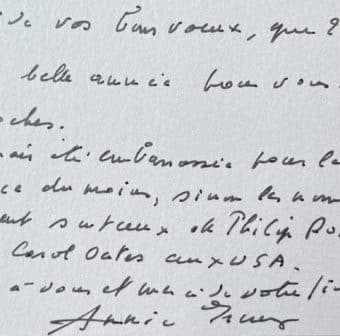 de vos bons voeux, que 2
belle année pour vous
oches.
été embarrassée pour la
ce du moins, sinon les nom
ent surtout ok Philip Ro
Carol Oates aux USA.
à vous et merci de votre fi
Annie Ernaux